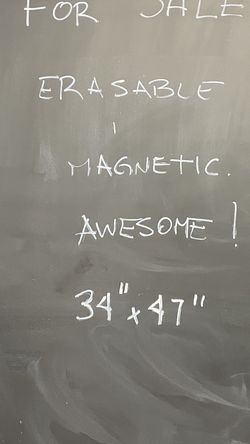 FOR SALE
ERASABLE
MAGNETIC.
AWESOME!
34" x 47"